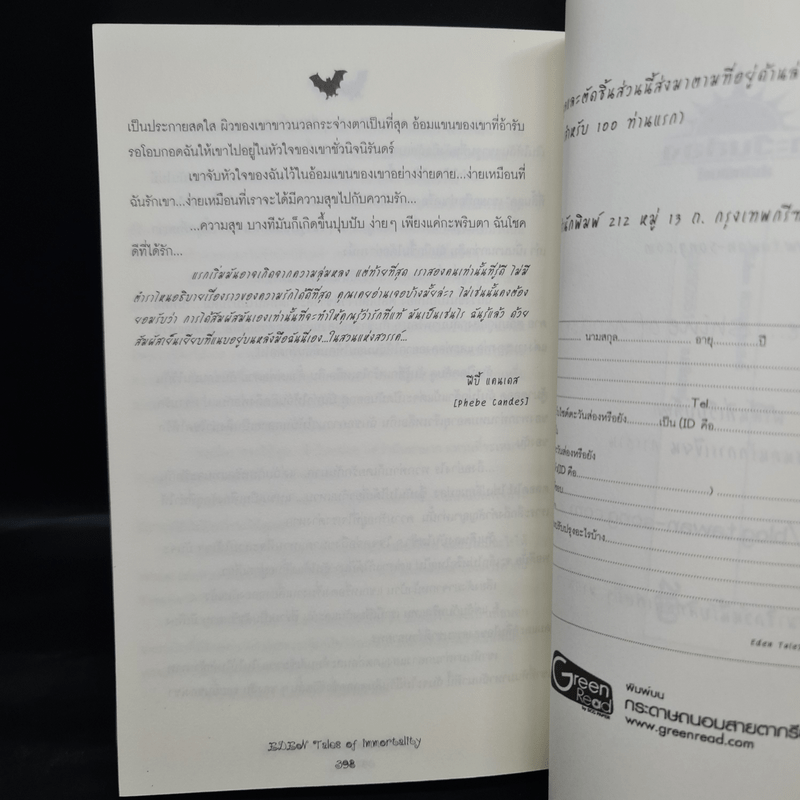 เป็นประกายสดใส ผิวของเขาขาวนวลกระจ่างตาเป็นที่สุด อ้อมแขนของเขาที่อ้ารับ
รอโอบกอดฉันให้เขาไปอยู่ในหัวใจของเขาชั่วนิจนิรันดร์
เขาจับหัวใจของฉันไว้ในอ้อมแขนของเขาอย่างง่ายดาย...ง่ายเหมือนที่
ฉันรักเขา...ง่ายเหมือนที่เราจะได้มีความสุขไปกับความรัก...
...ความสุข บางทีมันก็เกิดขึ้นปุบปับ ง่ายๆ เพียงแค่กะพริบตา ฉันโชค
ดีที่ได้รัก...
แรกเริ่มมันอาจเกิดจากความลุ่มหลง แต่ท้ายที่สุด เราสองคนเท่านั้นที่รู้ดี ไม่มี
ตำราไหนอธิบายเรื่องราวของความรักได้ดีที่สุด คุณเคยอ่านเจอบ้างมั้ยล่ะ? ไม่เช่นนั้นคงต้อง
ยอมรับว่า การได้สัมผัสมันเองเท่านั้นที่จะทำให้คุณรู้ว่ารักที่แท้ มันเป็นเช่นไร ฉันรู้แล้ว ด้วย
สัมผัสเย็นเยียบที่แนบอยู่บนหลังมือฉันนี่เอง...ในสวนแห่งสวรรค์...
ฟีบี้ แคนเดส
[Phebe Candes]
EDEN Tales of Immortality
398
และตัดชิ้นส่วนนี้ส่งมาตามที่อยู่ด้านล่
สำหรับ 100 ท่านแรก)
นักพิมพ์ 212 หมู่ 13 ถ. กรุงเทพกรีฑ
นามสกุล.................... อายุ............ปี
Tel.
ไซต์ตะวันส่องหรือยัง..........เป็น (ID คือ
วันส่องหรือยัง
(ID คือ....................)
ปรับปรุงอะไรบ้าง
Eden Tales
Green Read
พิมพ์บน
กระดาษถนอมสายตากรี
www.greenread.com